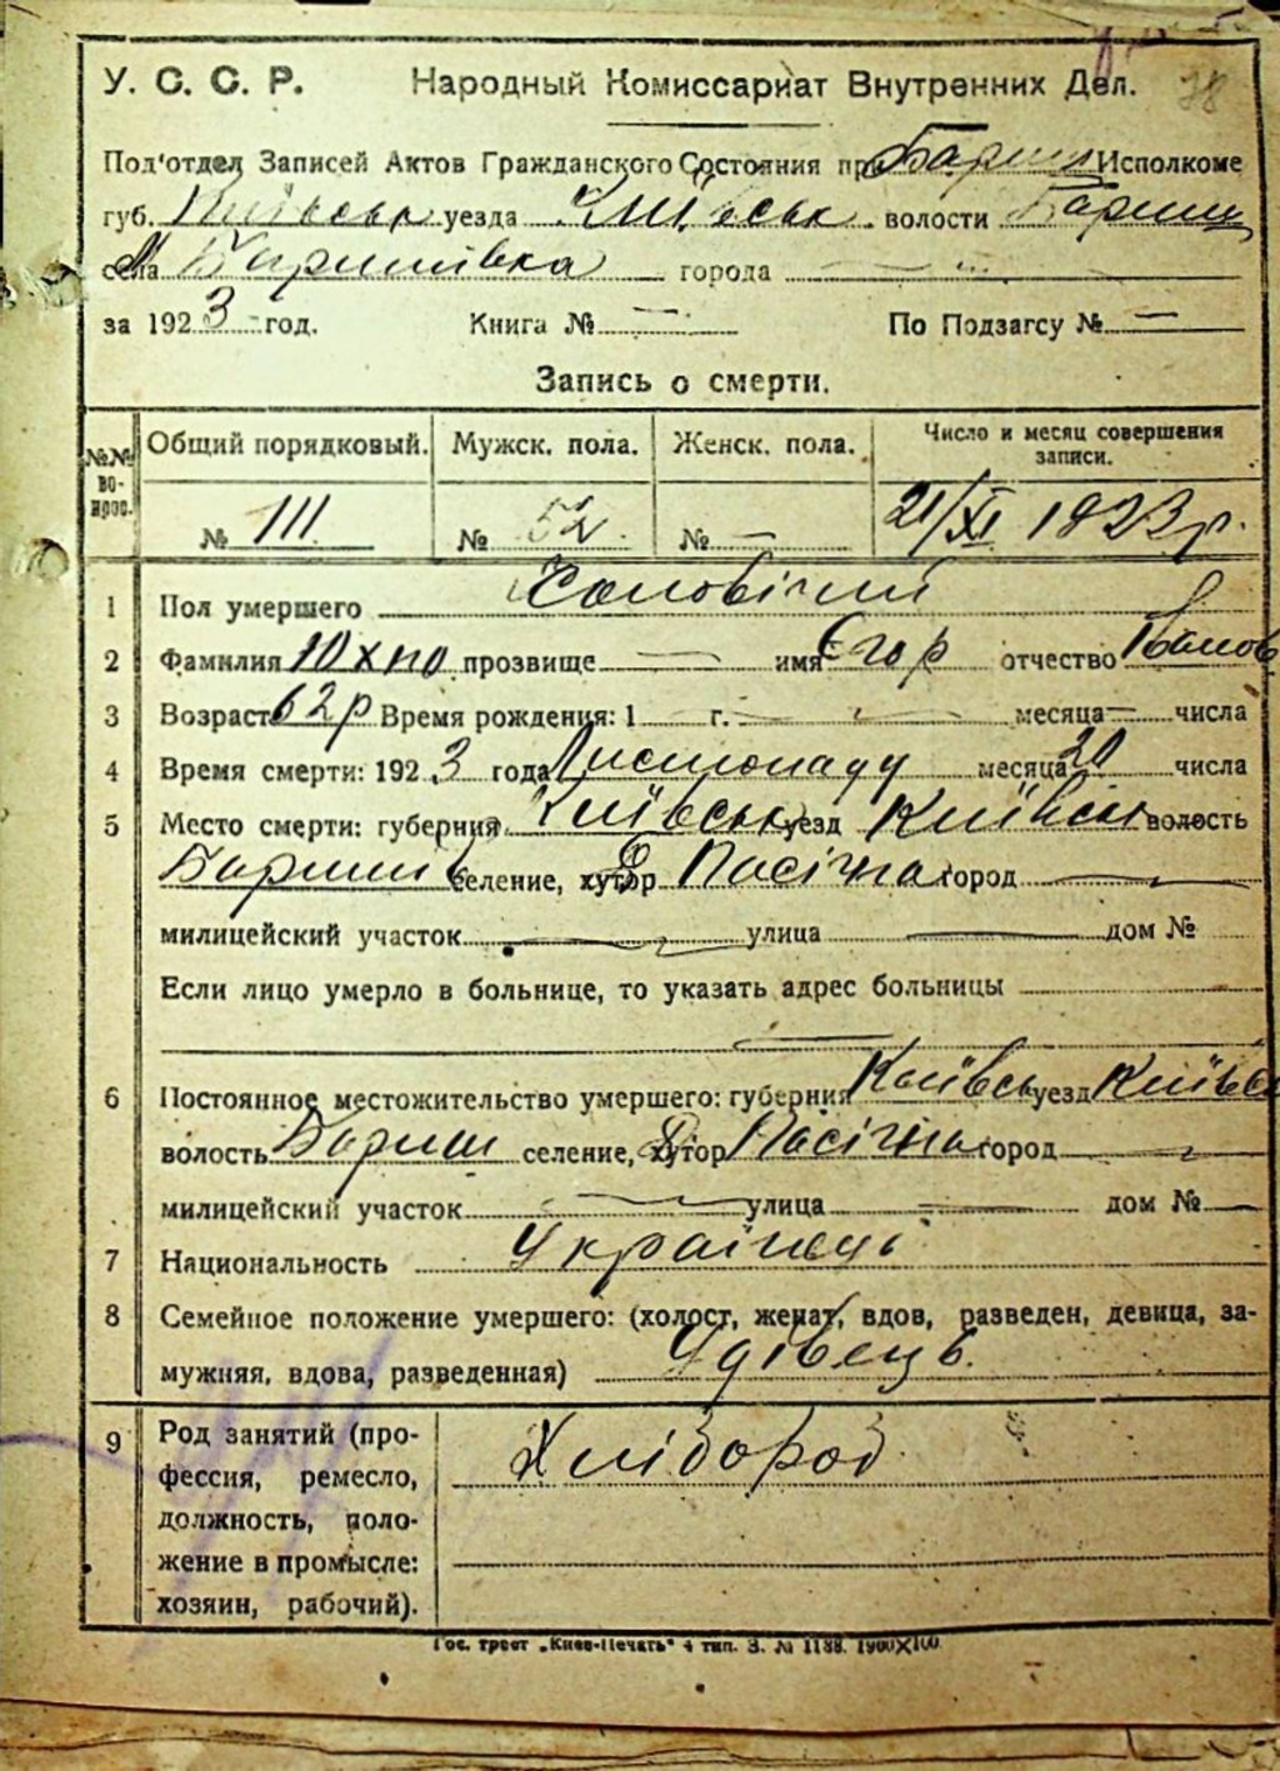 У. С. С. Р. Народный Комиссариат Внутренних Дел. 78
Под'отдел Записей Актов Гражданского Состояния при Бариш Исполкоме
губ. Київськ уезда Київськ волости Бариш
села М Баришівка города —
за 1923 год. Книга № — По Подзагсу № —
Запись о смерти.
№№ вопрос. Общий порядковый. Мужск. пола. Женск. пола. Число и месяц совершения записи.
№ 111 № 52 № — 21/XI 1923 р.
1 Пол умершего Чоловічий
2 Фамилия Юхно прозвище — имя Єгор отчество Іванов
3 Возраст 62 р Время рождения: 1 — г. — месяца — числа
4 Время смерти: 1923 года Листопаду месяца 20 числа
5 Место смерти: губерния Київськ уезд Київськ волость
Баришів селение, хутор Пасічна город —
милицейский участок — улица — дом №
Если лицо умерло в больнице, то указать адрес больницы
—
6 Постоянное местожительство умершего: губерния Київськ уезд Київськ
волость Бариш селение, хутор Пасічна город —
милицейский участок — улица — дом № —
7 Национальность Українець
8 Семейное положение умершего: (холост, женат, вдов, разведен, девица, за-
мужняя, вдова, разведенная) Удівець.
9 Род занятий (про- Хлібороб
фессия, ремесло,
должность, поло-
жение в промысле:
хозяин, рабочий).
Гос. трест „Киев-Печать“ 4 тип. З. № 1188. 1900Х100